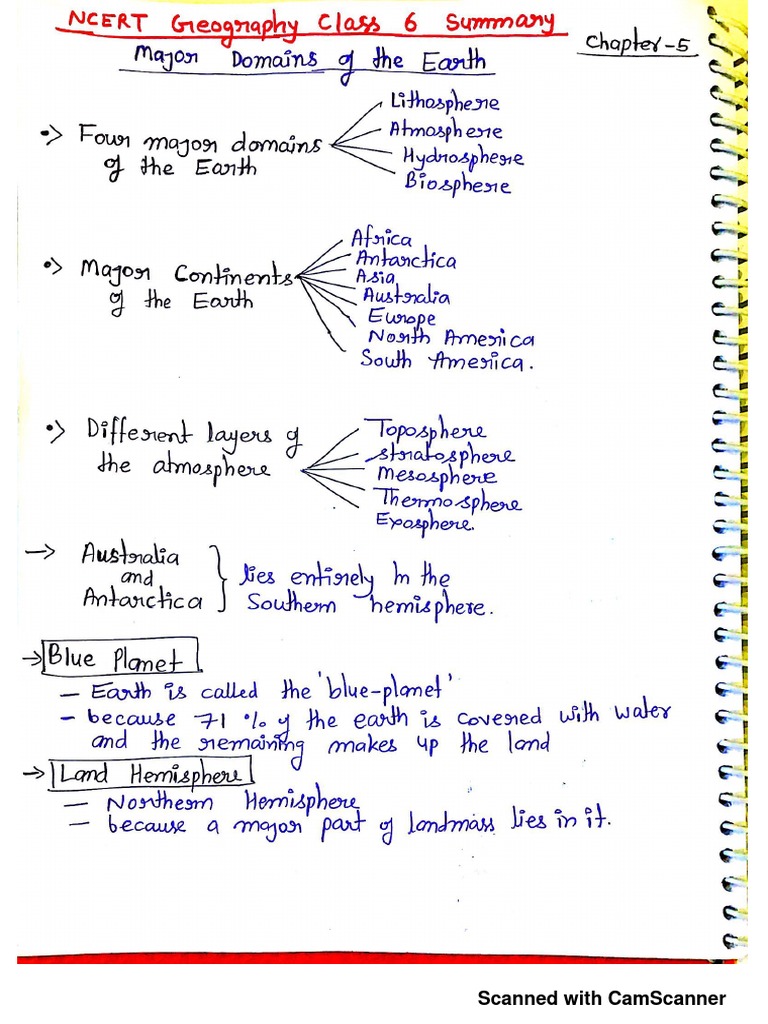 NCERT Geography Class 6 Summary
Chapter-5
Major Domains of the Earth
Four major domains
of the Earth
Lithosphere
Atmosphere
Hydrosphere
Biosphere
Major Continents
of the Earth
Africa
Antarctica
Asia
Australia
Europe
North America
South America.
Different layers of
the atmosphere
Toposphere
Stratosphere
Mesosphere
Thermosphere
Exosphere.
→ Australia
and
Antarctica
lies entirely In the
Southern hemisphere.
→ Blue Planet
– Earth is called the 'blue-planet'
– because 71 % of the earth is covered with water
and the remaining makes up the land
→ Land Hemisphere
– Northern Hemisphere
– because a major part of landmass lies in it.
Scanned with CamScanner